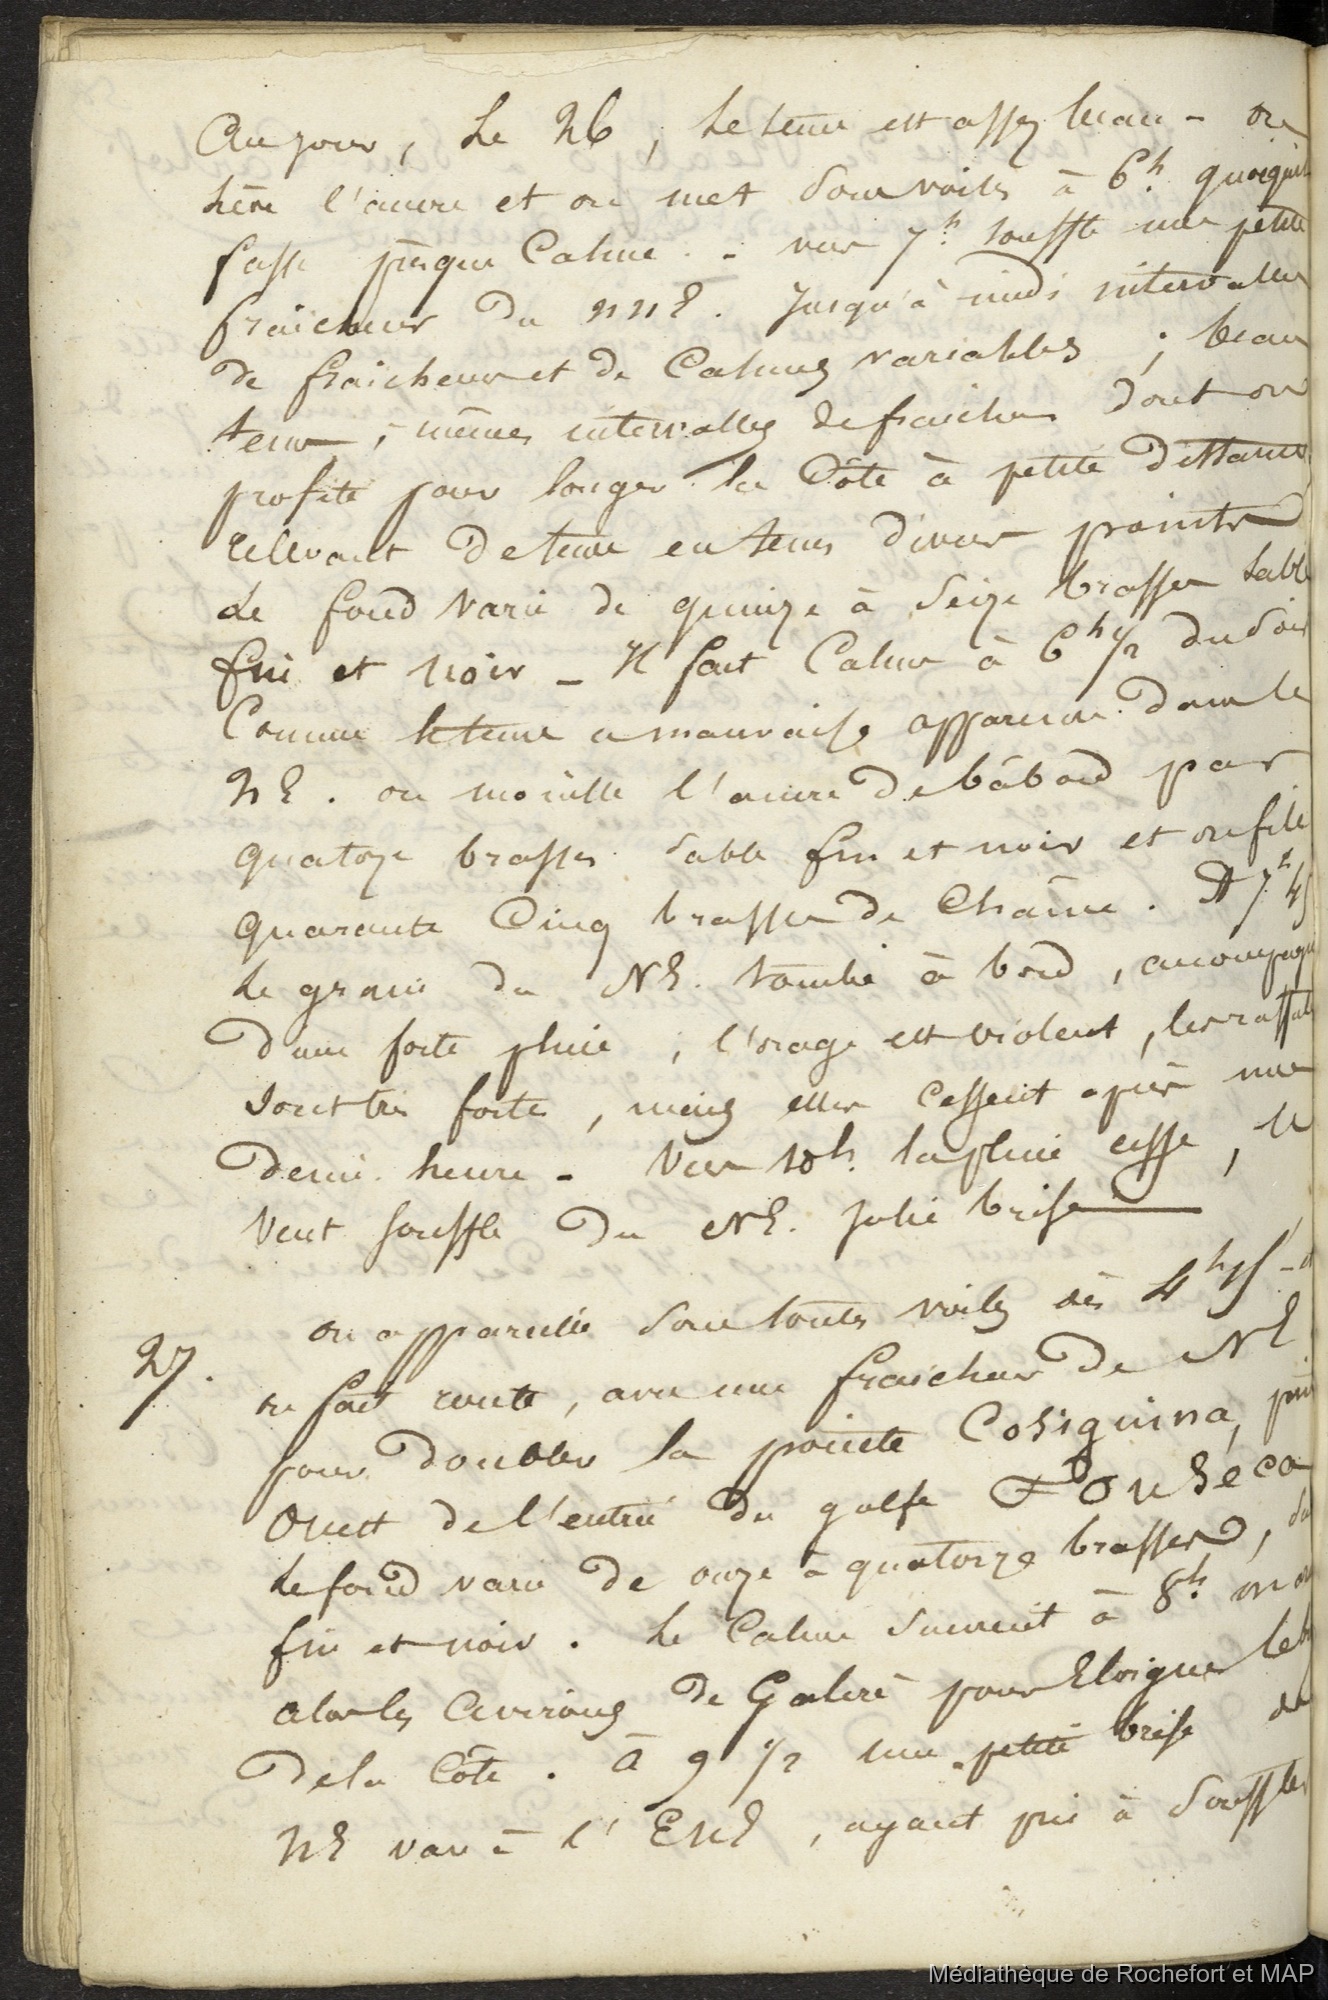 Au jour, Le 26, le tems est assez beau - on
hève l'ancre et on met sous voiles à 6h. quoiqu'il
fasse presque Calme. - vers 7h. souffle une petite
fraicheur du NNE. Jusqu'à midi intervalles
de fraicheur et de Calmes variables ; beau
tems, - mêmes intervalles de fraicheur dont on
profite pour longer la Côte à petite distance,
relevant de tems en tems divers points
Le fond varie de quinze à seize brasses sable
fin et noir - Il fait Calme à 6h 1/2 du soir
Comme le tems a mauvaise apparence dans le
NE. on mouille l'ancre de bâbord par
quatorze brasses sable fin et noir et on file
quarante Cinq brasses de Chaîne. A 7h 45
Le grain du NE. tombe à bord, accompagn
d'une forte pluie ; l'orage est violent, les raffales
sont très fortes, mais elles cessent après une
demi heure - Vers 10h. la pluie cesse, le
vent souffle du NE. jolie brise
27. on appareille sous toutes voiles dès 4h 15 -
on fait route, avec une fraicheur de NE
pour doubler la pointe Cosiguina,
Ouest de l'entrée du golfe Fonseca
Le fond varie de onze à quatorze brasses,
fin et noir. Le Calme survient à 8h. on
alors les avirons de Galère pour Eloigner le
de la Côte. à 9 1/2 une petite brise du
NE var à l'ENE, ayant pris à souffler
Médiathèque de Rochefort et MAP